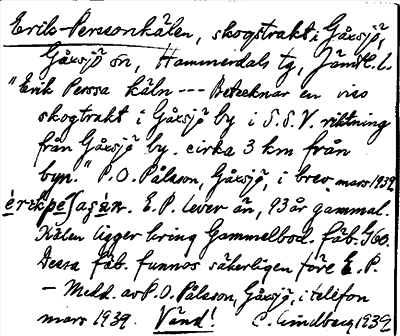 Erik-Perssonkälen, skogstrakt i Gåxsjö,
Gåxsjö sn, Hammerdals tg, Jämtl. l.
"Erik Perssa käln --- Betecknar en viss
skogtrakt i Gåxsjö by i S.S.V. riktning
från Gåxsjö by. cirka 3 km från
byn." P.O. Pålsson, Gåxsjö, i brev mars 1939.
E.P. lever än, 93 år gammal.
Kälen ligger kring Gammelbod. fäb. G60.
Dessa fäb. funnos säkerligen före E.P.
– Medd. av P.O. Pålsson, Gåxsjö, i telefon
mars 1939. Vänd! C. Lindberg 1939.